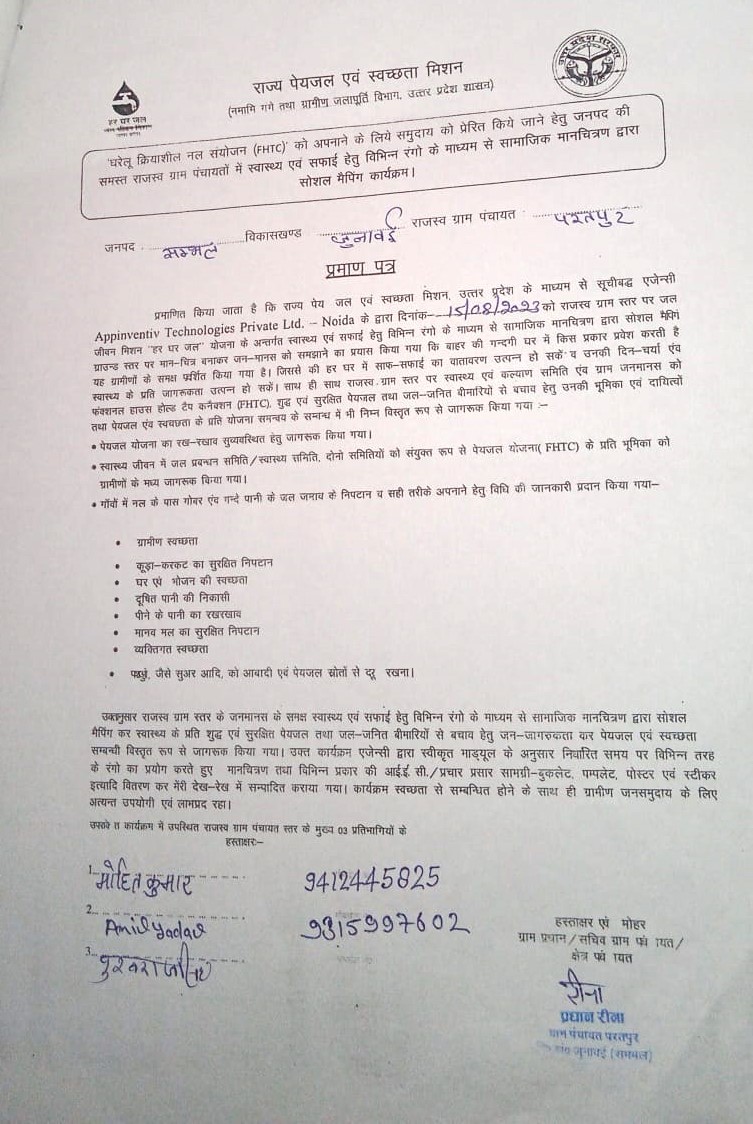 उत्तर प्रदेश सरकार
हर घर जल
जल जीवन मिशन
राज्य पेयजल एवं स्वच्छता मिशन
(नमामि गंगे तथा ग्रामीण जलापूर्ति विभाग, उत्तर प्रदेश शासन)
'घरेलू क्रियाशील नल संयोजन (FHTC)' को अपनाने के लिये समुदाय को प्रेरित किये जाने हेतु जनपद की
समस्त राजस्व ग्राम पंचायतों में स्वास्थ्य एवं सफाई हेतु विभिन्न रंगो के माध्यम से सामाजिक मानचित्रण द्वारा
सोशल मैपिंग कार्यक्रम।
जनपद : सम्भल विकासखण्ड जुनावई राजस्व ग्राम पंचायत : परतपुर
प्रमाण पत्र
प्रमाणित किया जाता है कि राज्य पेय जल एवं स्वच्छता मिशन, उत्तर प्रदेश के माध्यम से सूचीबद्ध एजेन्सी
Appinventiv Technologies Private Ltd. – Noida के द्वारा दिनांक– 15/08/2023 को राजस्व ग्राम स्तर पर जल
जीवन मिशन "हर घर जल" योजना के अन्तर्गत स्वास्थ्य एवं सफाई हेतु विभिन्न रंगो के माध्यम से सामाजिक मानचित्रण द्वारा सोशल मैपिंग
ग्राउन्ड स्तर पर मान-चित्र बनाकर जन-मानस को समझाने का प्रयास किया गया कि बाहर की गन्दगी घर में किस प्रकार प्रवेश करती है
यह ग्रामीणों के समक्ष प्रर्शित किया गया है। जिससे की हर घर में साफ-सफाई का वातावरण उत्पन्न हो सकें व उनकी दिन-चर्या एंव
स्वास्थ्य के प्रति जागरूकता उत्पन्न हो सकें। साथ ही साथ राजस्व ग्राम स्तर पर स्वास्थ्य एवं कल्याण समिति एंव ग्राम जनमानस को
फंक्शनल हाउस होल्ड टैप कनैक्शन (FHTC), शुद्ध एवं सुरक्षित पेयजल तथा जल-जनित बीमारियों से बचाव हेतु उनकी भूमिका एवं दायित्वों
तथा पेयजल एंव स्वच्छता के प्रति योजना समन्वय के सम्बन्ध में भी निम्न विस्तृत रूप से जागरूक किया गया :–
• पेयजल योजना का रख-रखाव सुव्यवस्थित हेतु जागरूक किया गया।
• स्वास्थ्य जीवन में जल प्रबन्धन समिति/स्वास्थ्य समिति, दोनो समितियों को संयुक्त रूप से पेयजल योजना( FHTC) के प्रति भूमिका को
ग्रामीणों के मध्य जागरूक किया गया।
• गाँवों में नल के पास गोबर एंव गन्दे पानी के जल जमाव के निपटान व सही तरीके अपनाने हेतु विधि की जानकारी प्रदान किया गया–
• ग्रामीण स्वच्छता
• कूड़ा-करकट का सुरक्षित निपटान
• घर एवं भोजन की स्वच्छता
• दूषित पानी की निकासी
• पीने के पानी का रखरखाव
• मानव मल का सुरक्षित निपटान
• व्यक्तिगत स्वच्छता
• जैसे सुअर आदि, को आबादी एवं पेयजल स्रोतों से दूर रखना।
उक्तानुसार राजस्व ग्राम स्तर के जनमानस के समक्ष स्वास्थ्य एवं सफाई हेतु विभिन्न रंगो के माध्यम से सामाजिक मानचित्रण द्वारा सोशल
मैपिंग कर स्वास्थ्य के प्रति शुद्ध एवं सुरक्षित पेयजल तथा जल-जनित बीमारियों से बचाव हेतु जन-जागरुकता कर पेयजल एवं स्वच्छता
सम्बन्धी विस्तृत रूप से जागरूक किया गया। उक्त कार्यक्रम एजेन्सी द्वारा स्वीकृत माड्यूल के अनुसार निर्धारित समय पर विभिन्न तरह
के रंगो का प्रयोग करते हुए मानचित्रण तथा विभिन्न प्रकार की आई.ई. सी./प्रचार प्रसार सामग्री-बुकलेट, पम्पलेट, पोस्टर एवं स्टीकर
इत्यादि वितरण कर मेरी देख-रेख में सम्पादित कराया गया। कार्यक्रम स्वच्छता से सम्बन्धित होने के साथ ही ग्रामीण जनसमुदाय के लिए
अत्यन्त उपयोगी एवं लाभप्रद रहा।
कार्यक्रम में उपस्थित राजस्व ग्राम पंचायत स्तर के मुख्य 03 प्रतिभागियों के
हस्ताक्षर:–
1. मोहित कुमार 9412445825
2. Anil yadav 9315997602
3.
हस्ताक्षर एवं मोहर
ग्राम प्रधान/सचिव ग्राम पंचायत/
क्षेत्र पंचायत
रीना
प्रधान रीना
ग्राम पंचायत परतपुर
जुनावई (सम्भल)